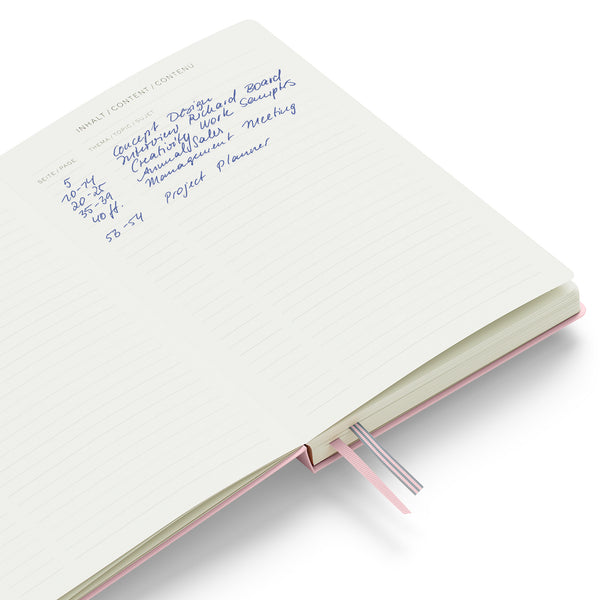 INHALT / CONTENT / CONTENU
SEITE / PAGE THEMA / TOPIC / SUJET
5 Concept Design
10-14 Interview Richard Board
20-25 Creativity Work
35-39 Annual Sales Meeting
40 ff. Management
53-54 Project Planner